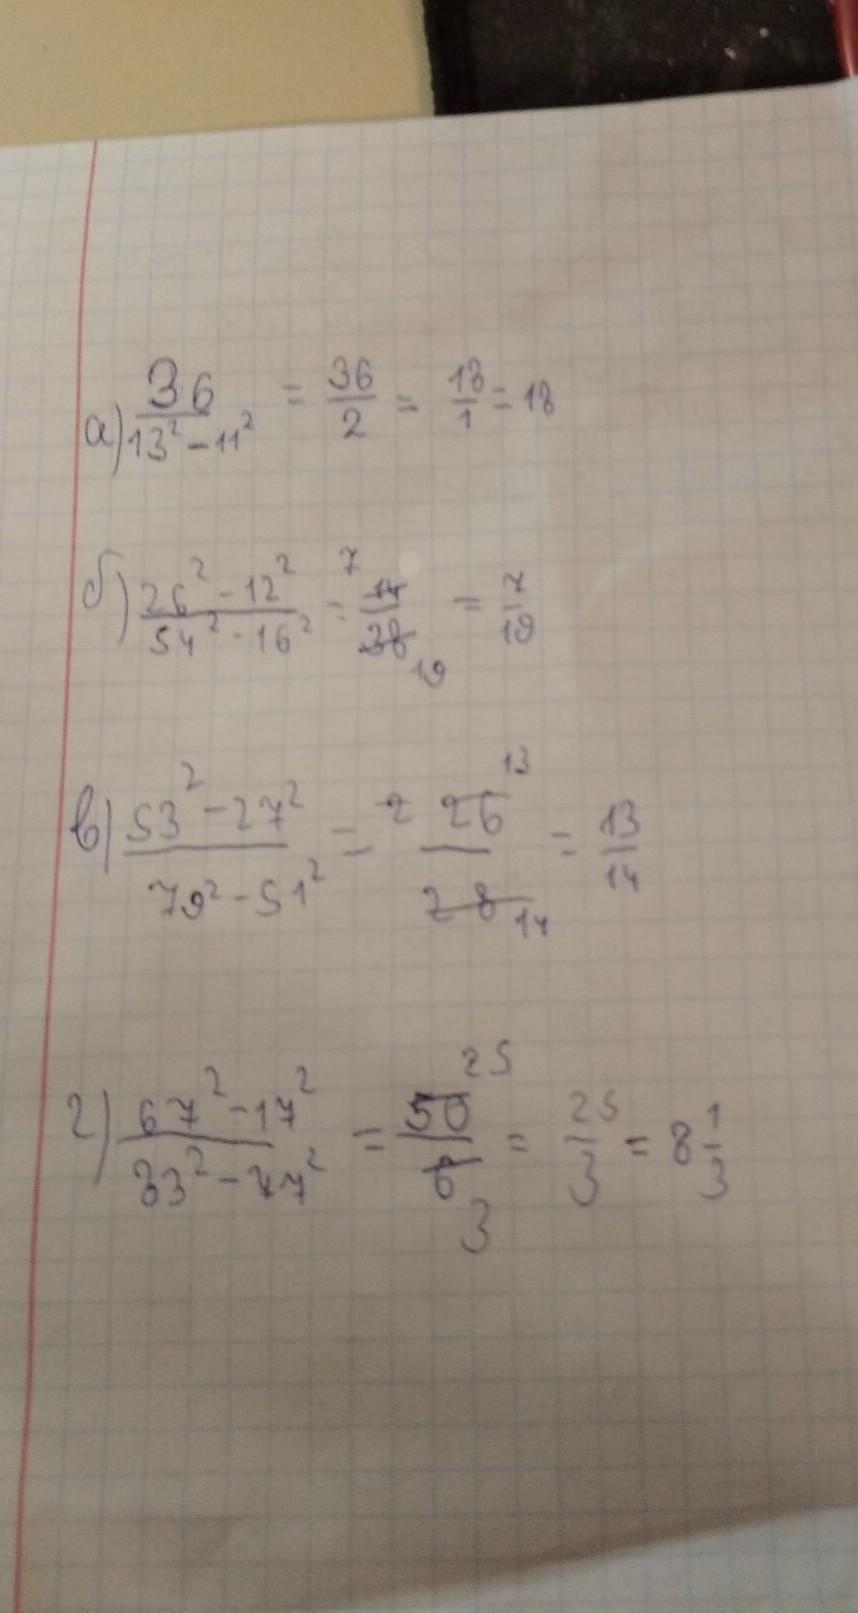 а) 36/(13² - 11²) = 36/2 = 18/1 = 18
б) (26² - 12²)/(54² - 16²) = 7 14/38 19 = 7/19
в) (53² - 27²)/(79² - 51²) = 2 26 13/28 14 = 13/14
г) (67² - 17²)/(83² - 77²) = 50 25/6 3 = 25/3 = 8 1/3